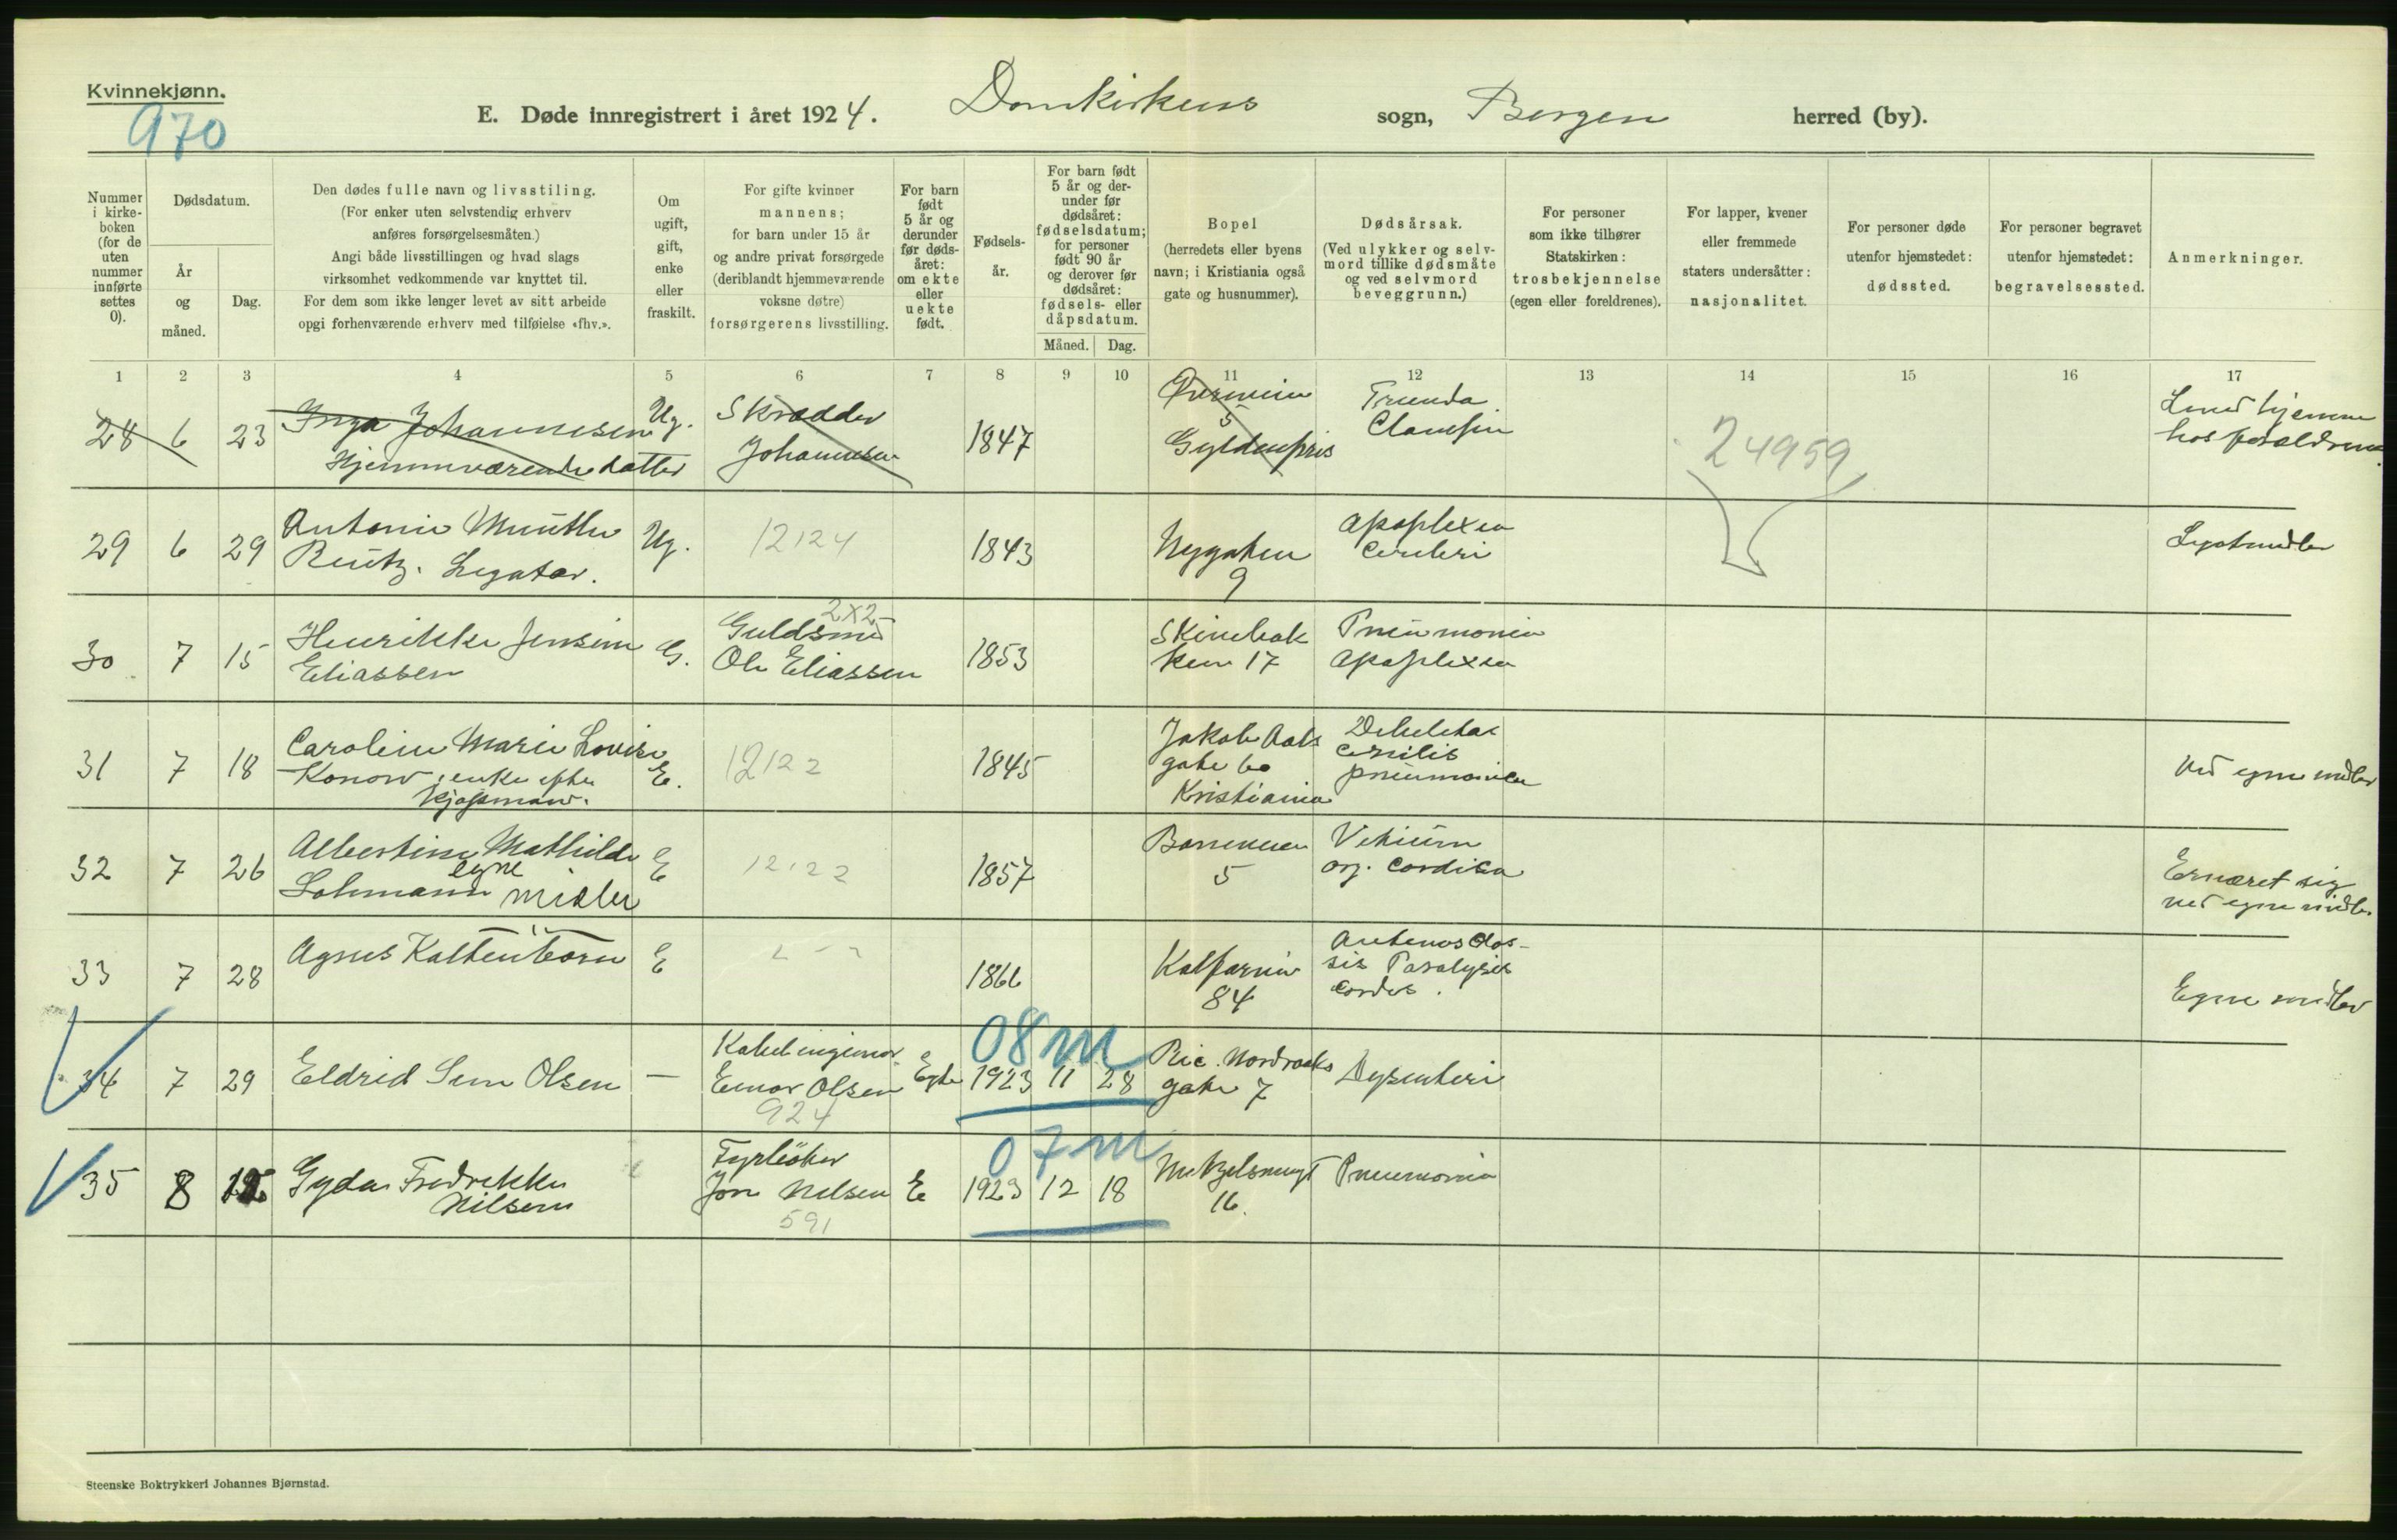 Kvinnekjønn.
970
E. Døde innregistrert i året 1924. Domkirkens sogn, Bergen herred (by).
Nummer i kirke- boken (for de uten nummer innførte settes 0).
Dødsdatum.
År og måned.
Dag.
Den dødes fulle navn og livsstiling.
(For enker uten selvstendig erhverv
anføres forsørgelsesmåten.)
Angi både livsstillingen og hvad slags
virksomhet vedkommende var knyttet til.
For dem som ikke lenger levet av sitt arbeide
opgi forhenværende erhverv med tilføielse «fhv.».
Om ugift, gift, enke eller fraskilt.
For gifte kvinner
mannens;
for barn under 15 år
og andre privat forsørgede
(deriblandt hjemmeværende
voksne døtre)
forsørgerens livsstilling.
For barn født 5 år og derunder før døds- året: om ekte eller uekte født.
Fødsels- år.
For barn født 5 år og der- under før dødsåret: fødselsdatum; for personer født 90 år og derover før dødsåret: fødsels- eller dåpsdatum.
Måned. Dag.
Bopel
(herredets eller byens
navn; i Kristiania også
gate og husnummer).
Dødsårsak.
(Ved ulykker og selv-
mord tillike dødsmåte
og ved selvmord
beveggrunn.)
For personer
som ikke tilhører
Statskirken:
trosbekjennelse
(egen eller foreldrenes).
For lapper, kvener
eller fremmede
staters undersåtter:
nasjonalitet.
For personer døde
utenfor hjemstedet:
dødssted.
For personer begravet
utenfor hjemstedet:
begravelsessted.
Anmerkninger.
1 2 3 4 5 6 7 8 9 10 11 12 13 14 15 16 17
28 6 23 Inga Johannesen Ug. Skrædder 1847
Hjemmværende datter Johannesen 5 Gyldenpris
24959
Levet hjemme
hos forældrene.
29 6 29 Antonie Münthe Ug. 12124 1843 Nygaten Apoplexia cerebri
Reutz. Legatar. 9
30 7 15 Henrikke Jensine G. Guldsmed 2x2 1853 Skivebak Pneumonia
Eliassen Ole Eliassen ken 17 Apoplexia
31 7 18 Caroline Marie Lovise E. 12122 1845 Jakob Aals
Konow, enke efter gate 60 pneumonia Ved egne midler
Kjøpmann. Kristiania
32 7 26 Albertine Mathilde E 12122 1857 Vitium
egne
Lohmann midler 5 org. cordis Ernæret sig
ved egne midler
33 7 28 Agnes Kaltenborn E 1866 Kalfarvei
84 sis Paralysis
cordis. Egne midler
08 m
34 7 29 Eldrid Sun Olsen — Kabelingeniør Egte 1923 11 28 Ric. Nordraaks Dysenteri
Einar Olsen gate 7
924
07 m
35 8 12 Gyda Fredrikke Fyrbøter E 1923 12 18 Pneumonia
Nilsen Jon Nilsen 16.
591
Steenske Boktrykkeri Johannes Bjørnstad.